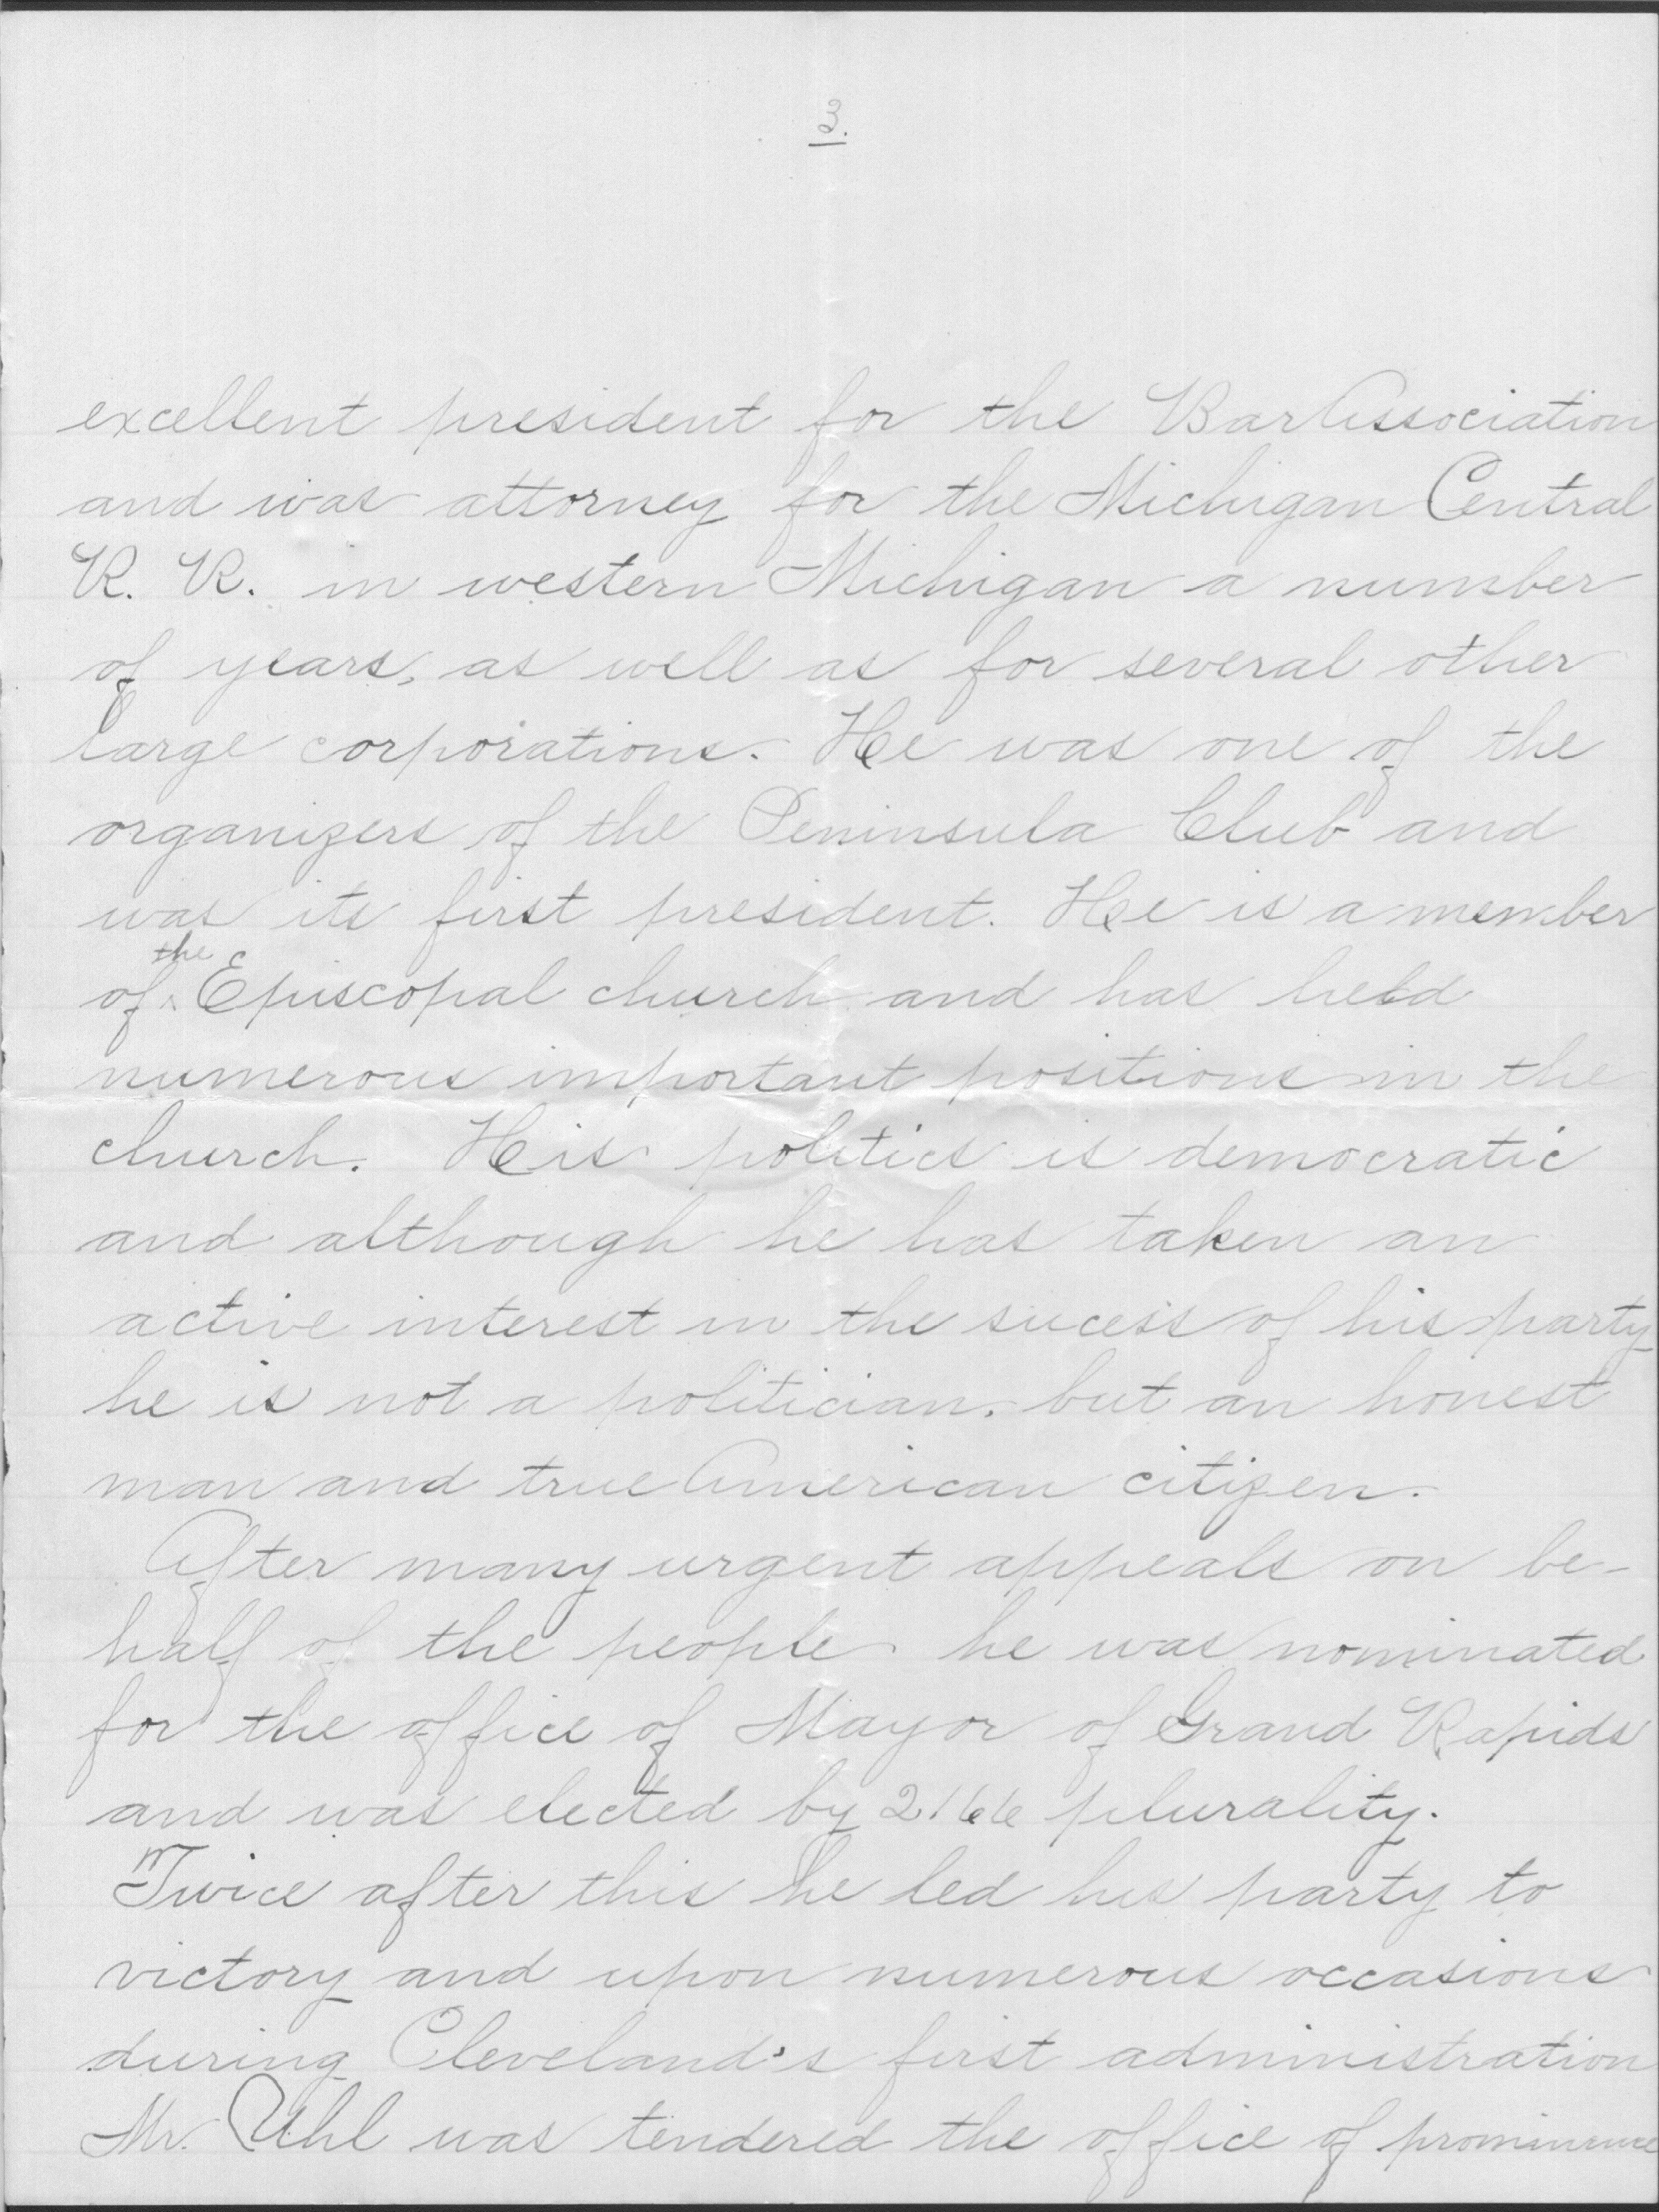 3.
excellent president for the Bar Association
and was attorney for the Michigan Central
R. R. in western Michigan a number
of years, as well as for several other
large corporations. He was one of the
organizers of the Peninsula Club and
was its first president. He is a member
of the Episcopal church and has held
numerous important positions in the
church. His politics is democratic
and although he has taken an
active interest in the sucess of his party
he is not a politician, but an honest
man and true American citizen.
After many urgent appeals on be-
half of the people he was nominated
for the office of Mayor of Grand Rapids
and was elected by 2166 plurality.
Twice after this he led his party to
victory and upon numerous occasions
during Cleveland's first administration
Mr. Uhl was tendered the office of prominence